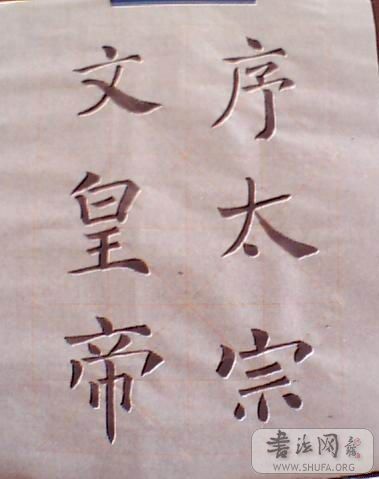 序太宗
文皇帝
書法网
WWW.SHUFA.ORG